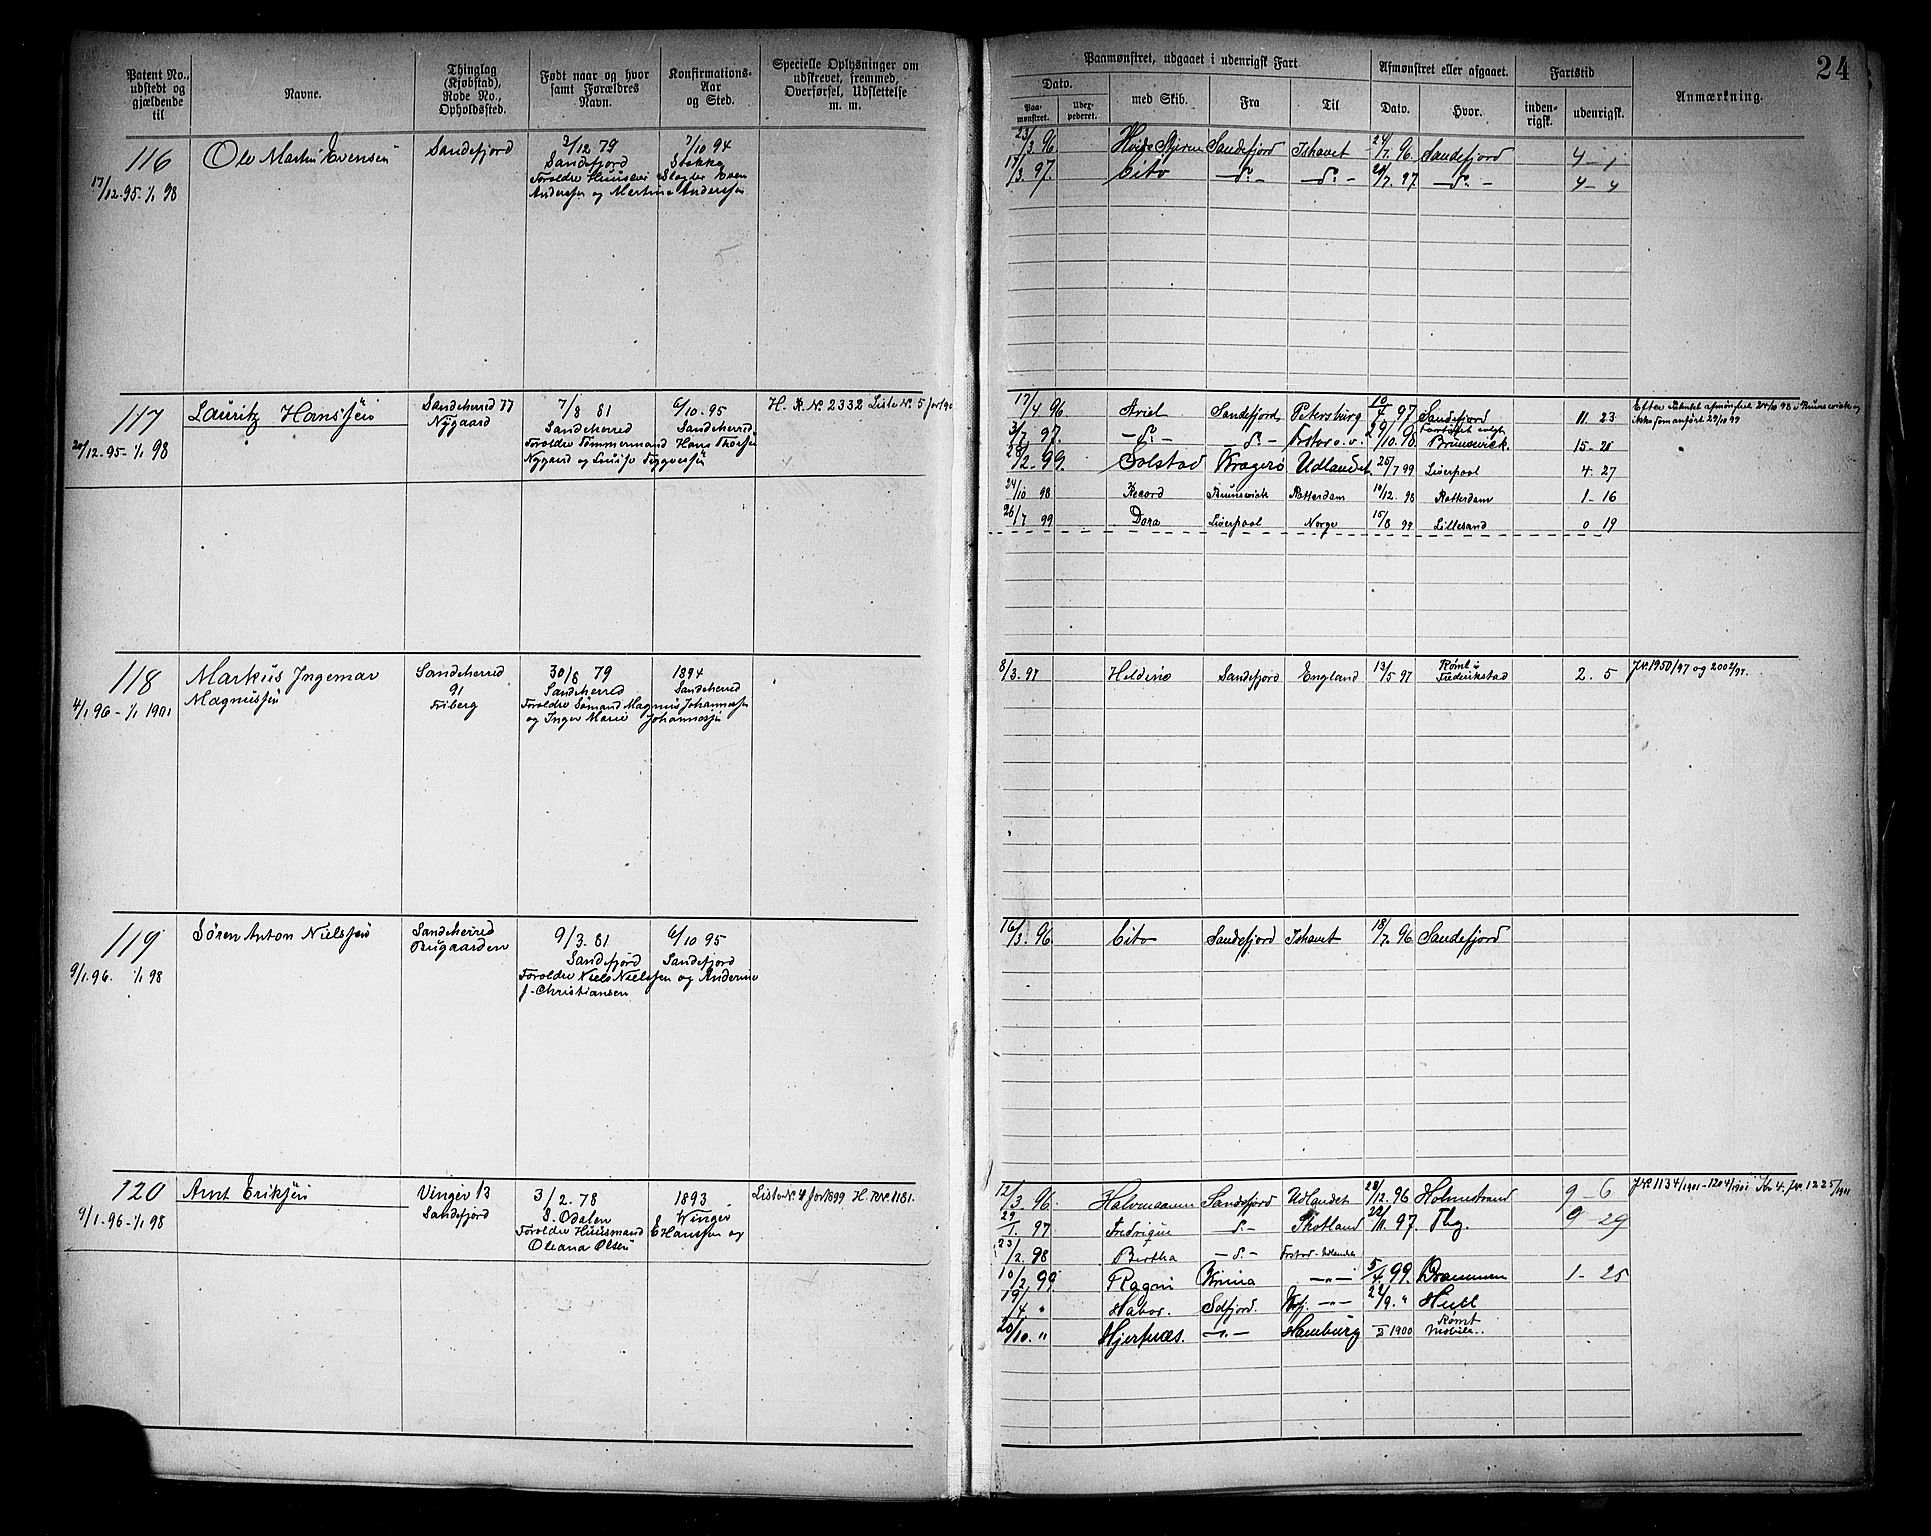 Patent No., udstedt og gjældende til
Navne.
Thinglag (Kjøbstad), Rode No., Opholdssted.
Født naar og hvor samt Forældres Navn.
Konfirmations-Aar og Sted.
Specielle Oplysninger om udskrevet, fremmed, Overførsel, Udslettelse m. m.
Paamønstret, udgaaet i udenrigsk Fart
Dato.
Paa-mønstret.
Udex-pederet.
med Skib.
Fra
Til
Afmønstret eller afgaaet.
Dato.
Hvor.
Fartstid
inden-rigsk.
udenrigsk.
Anmærkning.
24
116
17/12-95-1/1 98
Ole Martin Evensen
Sandefjord
2/12 79
Sandefjord
Forældre Huuseier Slagter Even
Andersen og Martine Andersen
7/10 94
Stokke
23/3 96 Hvide Stjerne Sandefjord Ishavet 24/7. 96. Sandefjord 4-1
17/3. 97. Cito -do- -do- 20/7. 97 -do- 4-4
117
20/12. 95-1/1 98
Lauritz Hanssen
Sandeherred 77
Nygaard
7/8 81
Sandeherred
Forældre Tømmermand Hans Thorsen
Nygaard og
6/10. 95
Sandeherred
H. R. No. 2332 Liste No. 5 for
17/4 96. Ariel Sandefjord Petersburg 10/7 97 Sandefjord 11. 23
3/7. 97. -do- -do- 10. 98 Brunswick. 15-21
28/2. 99. Solstad Kragerø Udlandet 25/7 99 Liverpool 4. 27
24/10 98 Record Brunswick Rotterdam 10/12. 98 Rotterdam 1-16
26/7 99 Dora Liverpool Norge 15/8 99 Lillesand 0 19
118
4/1 96-1/1 1901
Markus Ingemar
Magnussen
Sandeherred
91
Friberg
30/8 79
Sandeherred
Forældre Sømand Magnus Johannessen
og Inger Marie Johannessen
1894
Sandeherred
8/3. 97 Heldine Sandefjord England 13/5 97 Rømt i Frederikstad 2. 5
J. No. 1950/97 og 2002/97.
119
9/1. 96. 1/1 98
Søren Anton Nielssen
Sandeherred
Bugaarden
9/3. 81
Sandefjord
Forældre Niels Nielssen og Anderine
J. Christiansen
6/10 95
Sandefjord
16/3. 96. Cito Sandefjord Ishavet 18/7. 96. Sandefjord
120
9/1-96-1/1 98
Arnt Eriksen
Vinger 13
Sandefjord
3/2. 78
S. Odalen
Forældre Huusmand E Hanssen og
Oleana Olsen
1893
Vinger
Liste No. 4 for 1899 H. R No. 1181.
12/3. 96. Halvmaanen Sandefjord Udlandet 28/12. 96 Holmestrand 9-6
29/1. 97 Fredrigine -do- Skotland 22/11. 97. Tbg. 9-29
23/2. 98 Bertha -do-
10/2. 99 Ragni -"- 5/4. 99. Drammen 1-25
19/4 " Habor. Sdfjord. -"- 22/9. " Hull
20/10. " Hjertnæs. -"- Hamburg 1900 Rømt Mobile.
J. No. 1134/1901-1204/1901 Kr 4. J. No. 1225/1901